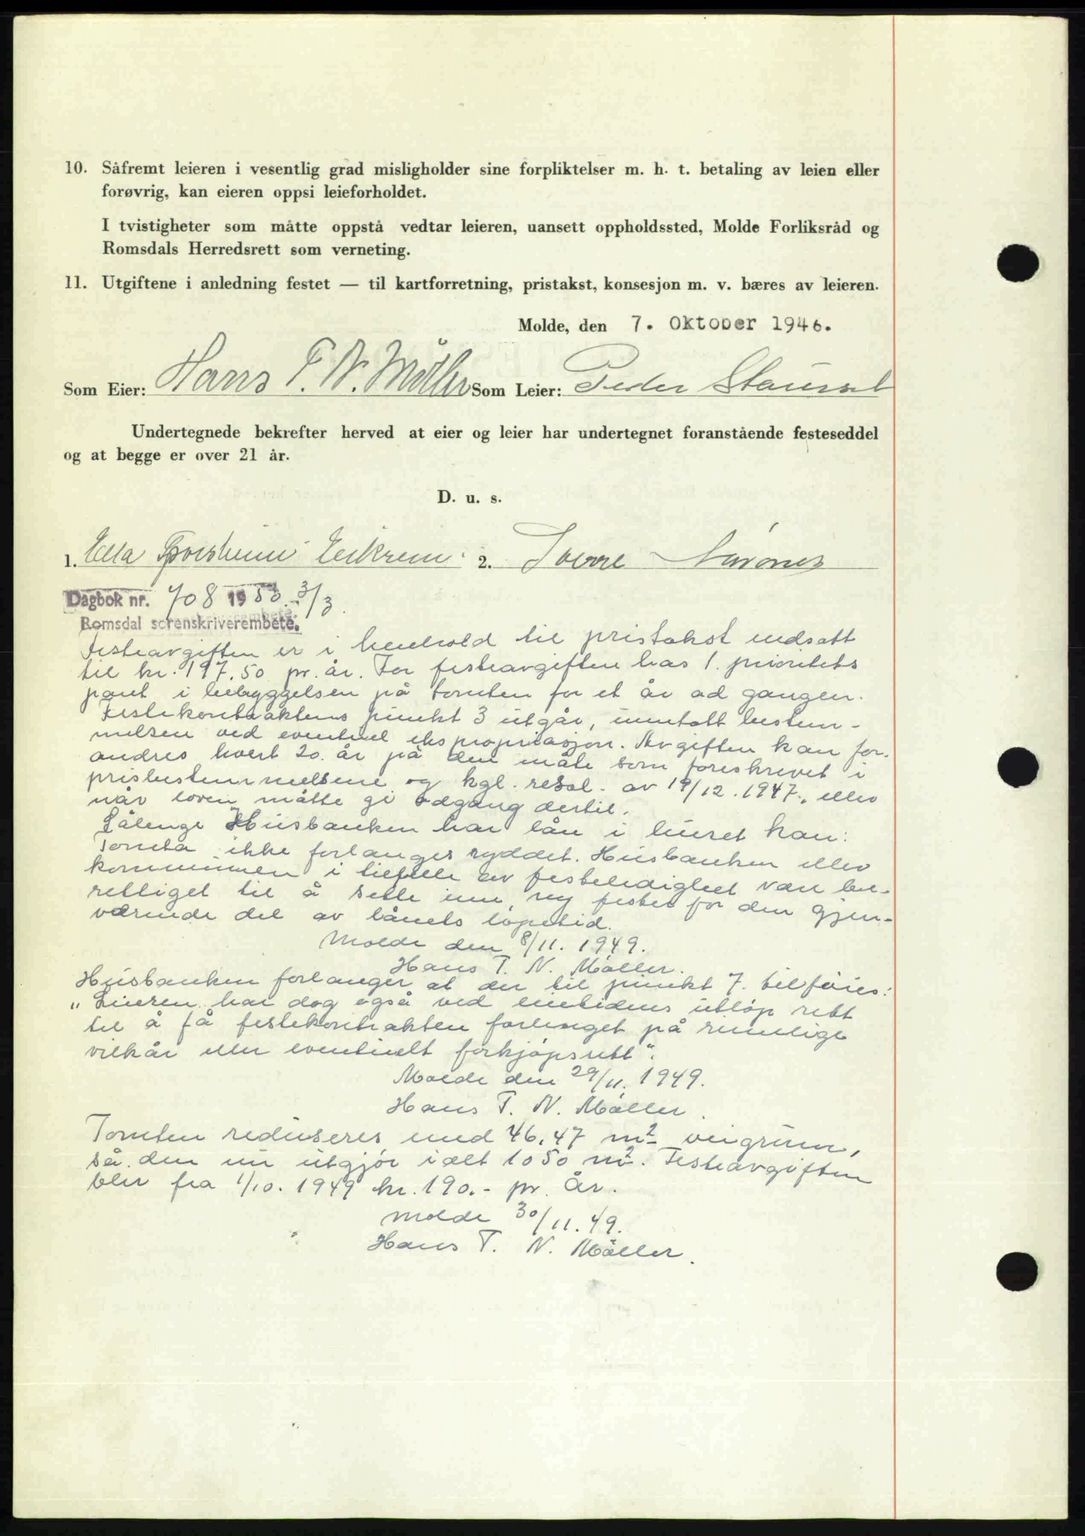 10. Såfremt leieren i vesentlig grad misligholder sine forpliktelser m. h. t. betaling av leien eller
forøvrig, kan eieren oppsi leieforholdet.
I tvistigheter som måtte oppstå vedtar leieren, uansett oppholdssted, Molde Forliksråd og
Romsdals Herredsrett som verneting.
11. Utgiftene i anledning festet — til kartforretning, pristakst, konsesjon m. v. bæres av leieren.
Molde, den 7. Oktober 1946.
Som Eier: Hans T. N. Møller Som Leier: Peder
Undertegnede bekrefter herved at eier og leier har undertegnet foranstående festeseddel
og at begge er over 21 år.
D. u. s.
1. Ella Eikrem 2. Sverre
Dagbok nr. 708 1953 3/3
Romsdal sorenskriverembete.
Festeavgiften er i henhold til pristakst nedsatt
til kr. 197,50 pr. år. For festeavgiften has 1. prioritets
pant i bebyggelsen på tomten for et år ad gangen.
Festekontraktens punkt 3 utgår, inntatt bestem-
melsen ved eventuel ekspropriasjon. Avgiften kan for-
andres hvert 20. år på den måte som foreskrevet i
prisbestemmelsene og kgl. resol. av 19/12. 1947, eller
når loven måtte gi adgang dertil.
Sålenge Husbanken har lån i huset kan:
Tomta ikke forlanges ryddet. Husbanken eller
kommunen i tilfelle av festeledighet være be-
rettiget til å sette inn ny fester for den gjen-
værende del av lånets løpetid.
Molde den 8/11. 1949.
Hans T. N. Møller.
Husbanken forlanger at der til punkt 7. tilføies:
„Leieren har dog også ved leietidens utløp rett
til å få festekontrakten forlenget på rimelige
vilkår eller eventuelt forkjøpsrett“.
Molde den 29/11. 1949.
Hans T. N. Møller.
Tomten reduseres med 46,47 m² veigrunn,
så den nu utgjør ialt 1050 m². Festeavgiften
blir fra 1/10. 1949 kr. 190.- pr. år.
Molde 30/11. 49.
Hans T. N. Møller.